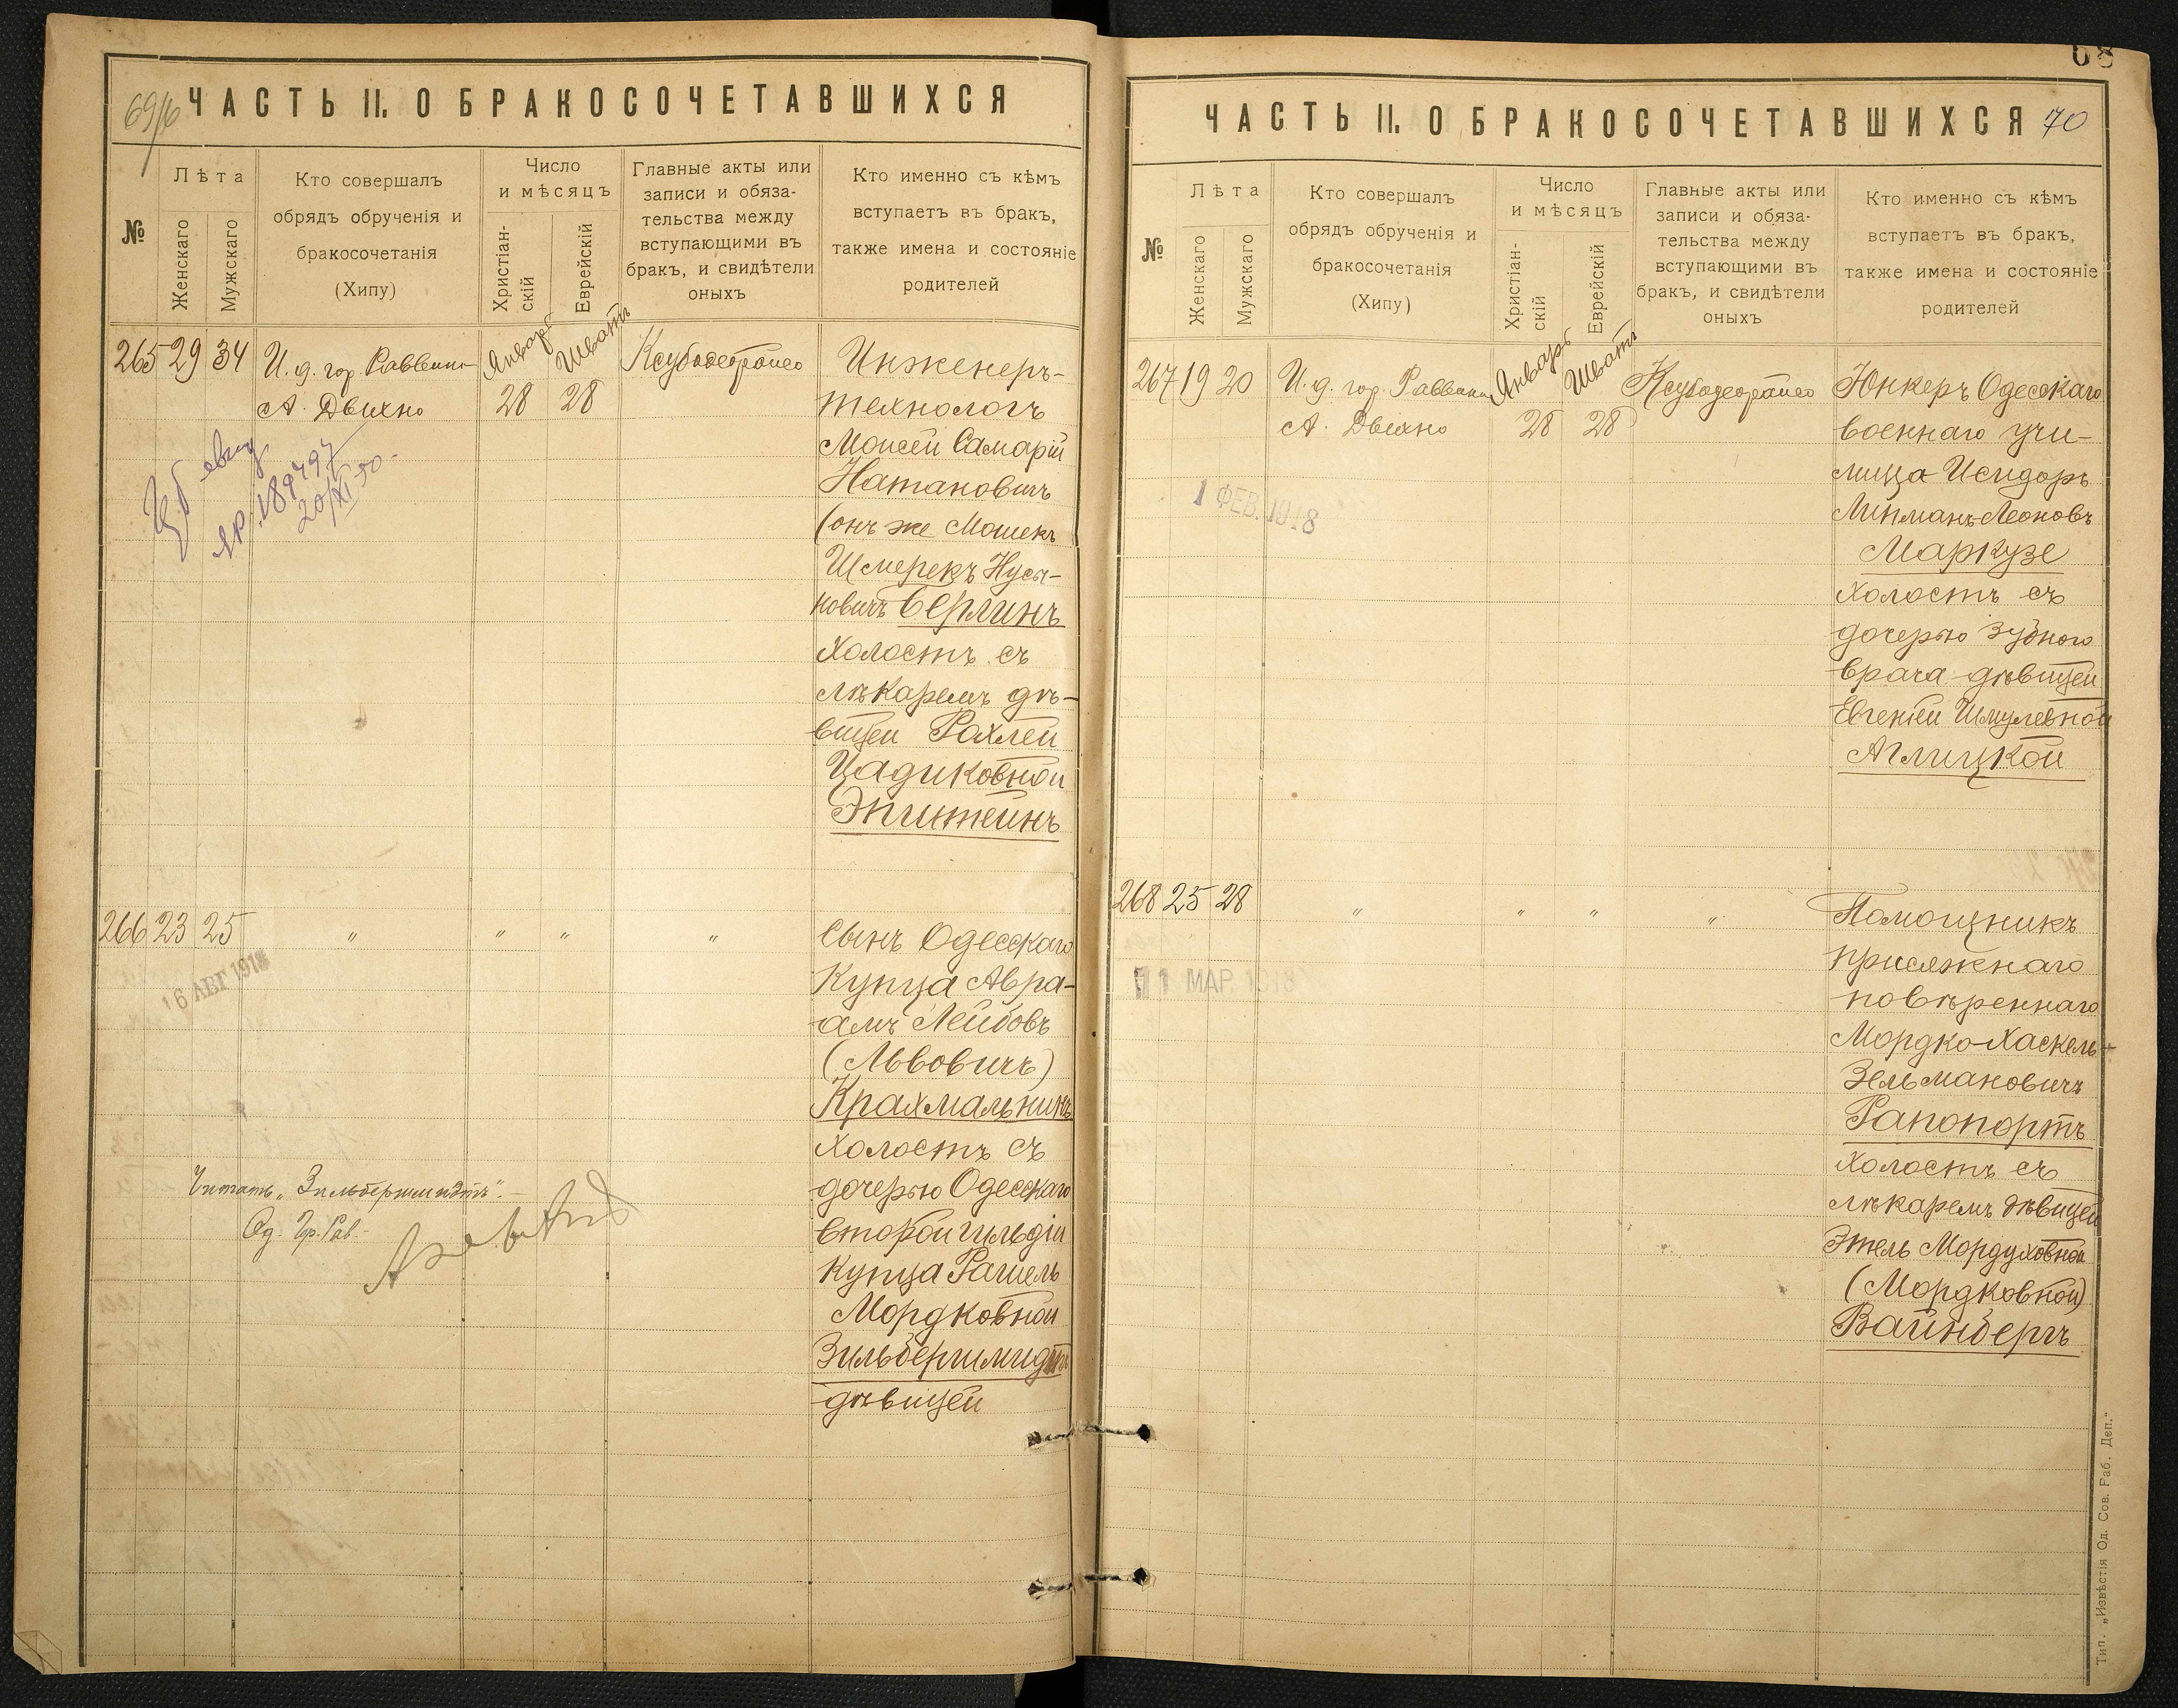 69/70
ЧАСТЬ II. О БРАКОСОЧЕТАВШИХСЯ
№
Лѣта
Женскаго
Мужскаго
Кто совершалъ
обрядъ обрученія и
бракосочетанія
(Хипу)
Число
и мѣсяцъ
Христіан-
скій
Еврейскій
Главные акты или
записи и обяза-
тельства между
вступающими въ
бракъ, и свидѣтели
оныхъ
Кто именно съ кѣмъ
вступаетъ въ бракъ,
также имена и состояніе
родителей
265 29 34
И. д. гор. Раввина
А. Двихно
Январь
28
Шватъ
28
Инженеръ-
технологъ
Моисей Самарій
Натановичъ
(онъ же Мошекъ
Шмерекъ Нусы-
новичъ Берлинъ
холостъ съ
лѣкаремъ дѣ-
вицей Рахлей
Цадиковной
Эпштейнъ
189497
20/XI 50.
266 23 25
" " " "
16 АВГ 1918
Сынъ Одесскаго
купца Авра-
амъ Лейбовъ
(Львовичъ)
Крахмальникъ
холостъ съ
дочерью Одесскаго
второй гильдіи
купца Рашель
Мордковной
Зильбершмидтъ
дѣвицей
Читать "Зильбершмидтъ".
Од. Гр. Рав.
68
ЧАСТЬ II. О БРАКОСОЧЕТАВШИХСЯ 70
№
Лѣта
Женскаго
Мужскаго
Кто совершалъ
обрядъ обрученія и
бракосочетанія
(Хипу)
Число
и мѣсяцъ
Христіан-
скій
Еврейскій
Главные акты или
записи и обяза-
тельства между
вступающими въ
бракъ, и свидѣтели
оныхъ
Кто именно съ кѣмъ
вступаетъ въ бракъ,
также имена и состояніе
родителей
267 19 20
И. д. гор. Раввина
А. Двихно
Январь
28
Шватъ
28
1 ФЕВ. 1918
Юнкеръ Одесскаго
военнаго учи-
лища Исидоръ
Липманъ Леоновъ
Маркузе
холостъ съ
дочерью зубного
врача дѣвицей
Евгеніей Шмулевной
Аглицкой
268 25 28
" " " "
11 МАР. 1918
Помощникъ
присяжнаго
повѣреннаго
Мордко-Хаскель
Зельмановичъ
Рапопортъ
холостъ съ
лѣкаремъ дѣвицей
Этель Мордуховной
(Мордковной)
Вайнбергъ
Тип. „Извѣстія Од. Сов. Раб. Деп."